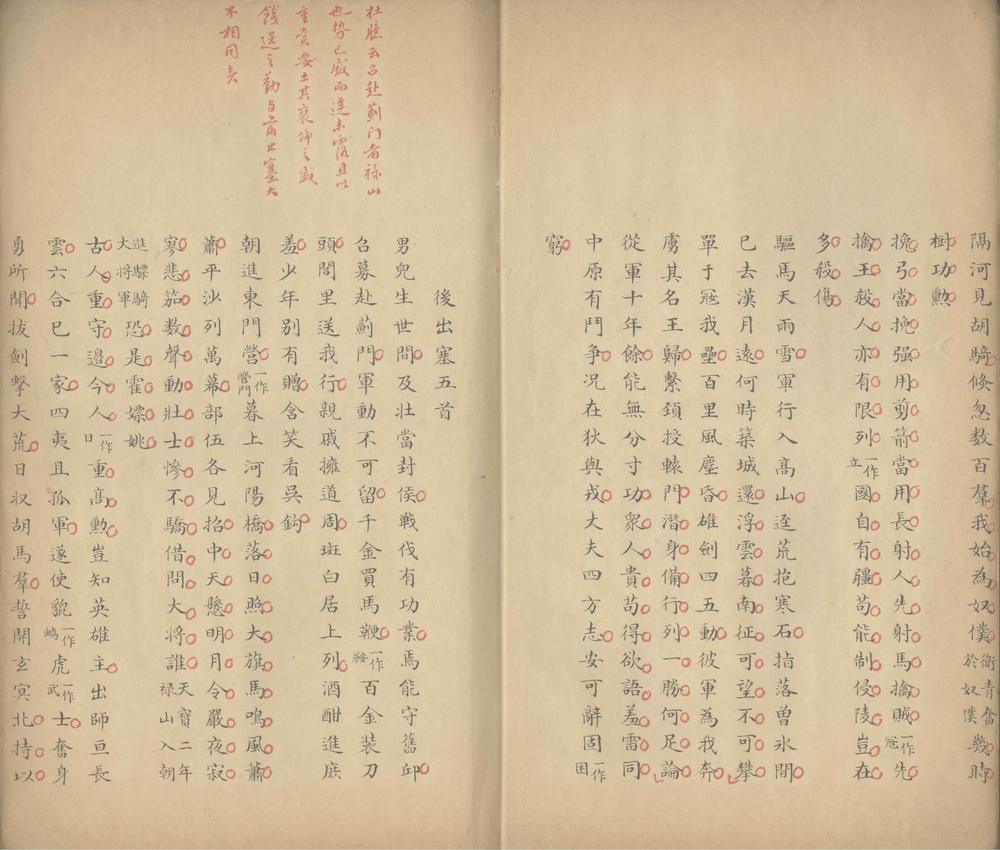 隔河見胡騎倐忽数百羣我始為奴僕衛青奮於奴僕幾時
樹功勲
挽弓當挽强用剪箭當用長射人先射馬擒賊一作冦先
擒王殺人亦有限列一作立國自有疆苟能制侵陵豈在
多殺傷
驅馬天雨雪軍行入髙山逕荒抱寒石指落曽氷間
已去漢月遠何時築城還浮雲暮南征可望不可攀
單于冦我壘百里風塵昏雄劍四五動彼軍為我奔
虜其名王歸繫頸授轅門潜身備行列一勝何足論
從軍十年餘能無分寸功衆人貴苟得欲語羞雷同
中原有鬥争况在狄與戎大夫四方志安可辭固一作困
窮
杜臆云召赴薊门者禄山
也势已盛而逆未露且以
重賞要士其裒師之盛
餞送之勤与前出塞大
不相同矣
後出塞五首
男兒生世間及壯當封侯戰伐有功業焉能守舊邱
召募赴薊門軍動不可留千金買馬鞭一作鞍百金装刀
頭閭里送我行親戚擁道周斑白居上列酒酣進庶
羞少年别有贈含笑看吳鈎
朝進東門營一作營門暮上河陽橋落日照大旗馬鳴風蕭
蕭平沙列萬幕部伍各見招中天懸明月令嚴夜寂
寥悲笳数聲動壯士慘不驕借問大将誰天寶二年禄山入朝
進驃騎大将軍恐是霍嫖姚
古人重守邉今人一作日重髙勲豈知英雄主出師亘長
雲六合已一家四夷且孤軍遂使貔一作螭虎一作武士奮身
勇所聞拔劍擊大荒日収胡馬羣誓開玄冥北持以